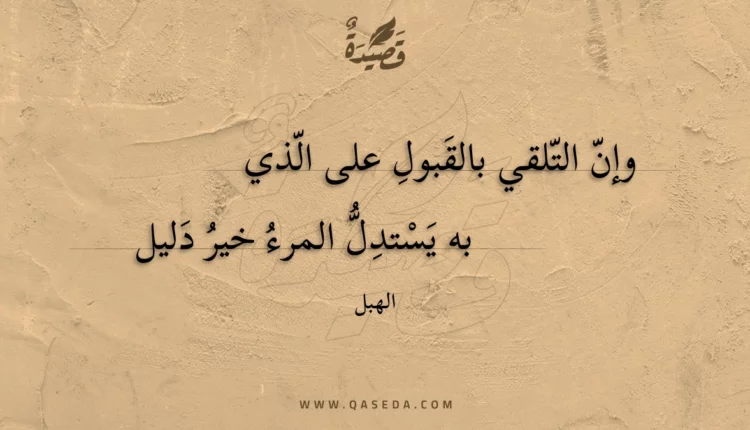 قَصِيدَةٌ
وإنّ التّلقي بالقَبولِ على الّذي
به يَسْتدِلُّ المرءُ خيرُ دَليل
الهبل
WWW.QASEDA.COM